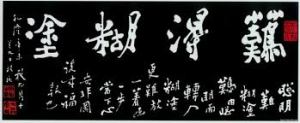 難得糊塗
聰明
難糊塗
難由聰
明而
轉入
糊塗
更難放
一著退
一步
當下心
安非圖
後來福
報也